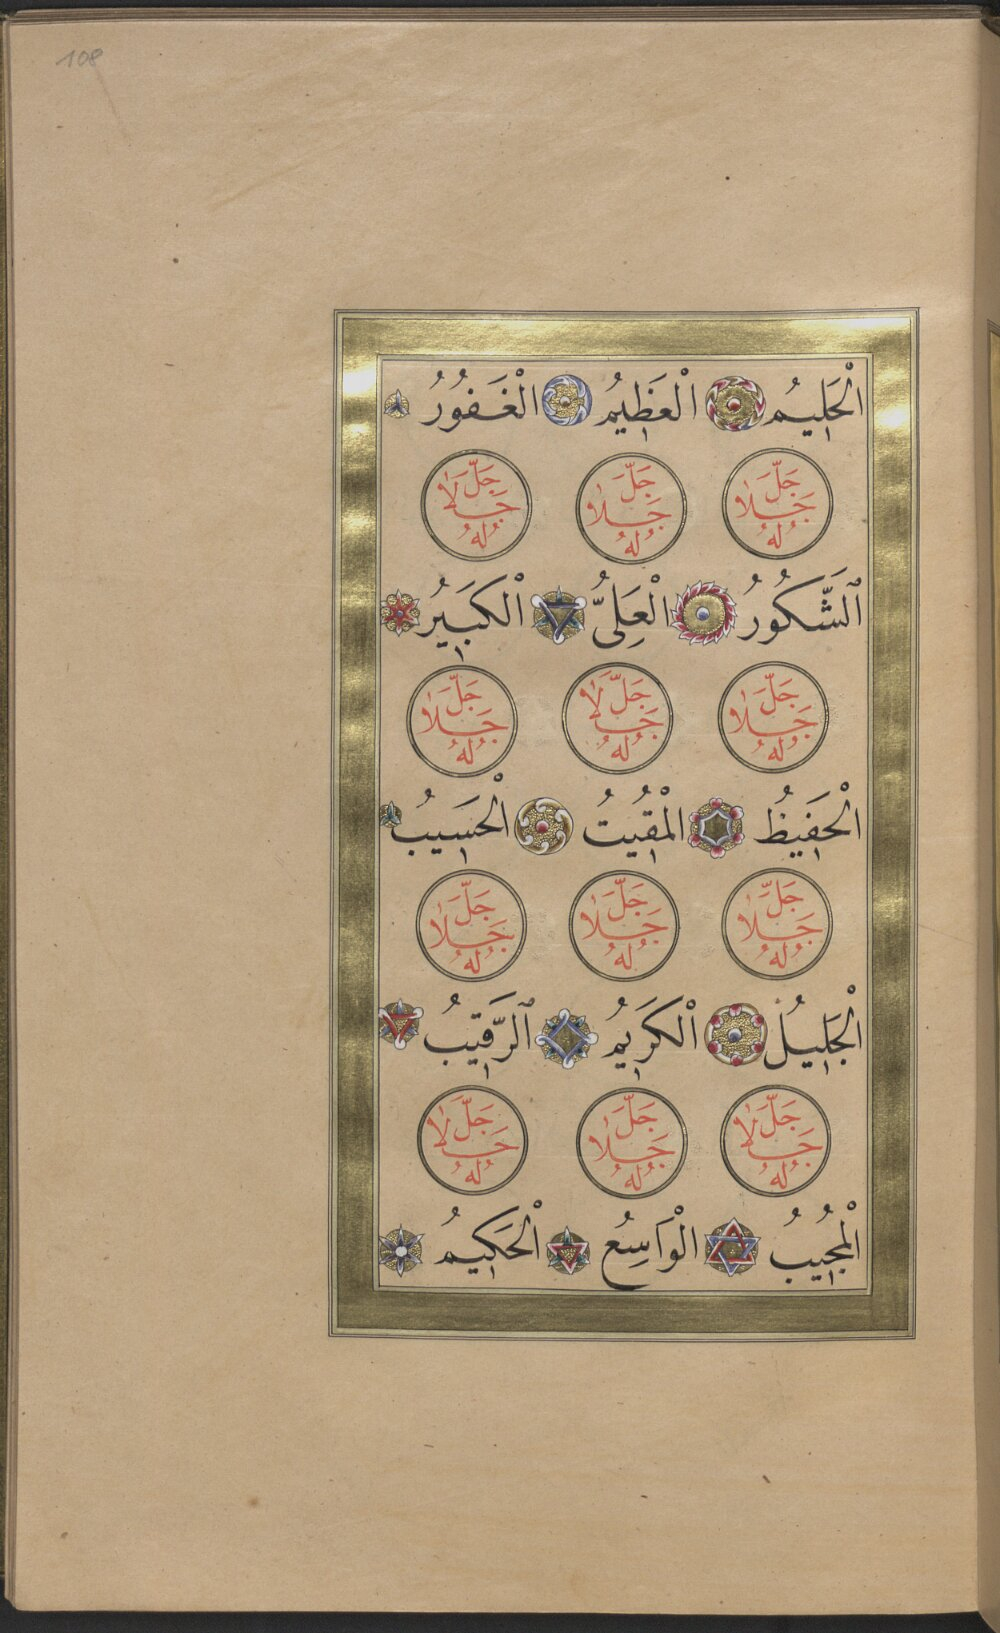 108
اَلْحَلِيمُ اَلْعَظِيمُ اَلْغَفُورُ
جَلَّ جَلَالُهُ جَلَّ جَلَالُهُ جَلَّ جَلَالُهُ
اَلشَّكُورُ اَلْعَلِىُّ اَلْكَبِيرُ
جَلَّ جَلَالُهُ جَلَّ جَلَالُهُ جَلَّ جَلَالُهُ
اَلْحَفِيظُ اَلْمُقِيتُ اَلْحَسِيبُ
جَلَّ جَلَالُهُ جَلَّ جَلَالُهُ جَلَّ جَلَالُهُ
اَلْجَلِيلُ اَلْكَرِيمُ اَلرَّقِيبُ
جَلَّ جَلَالُهُ جَلَّ جَلَالُهُ جَلَّ جَلَالُهُ
اَلْمُجِيبُ اَلْوَاسِعُ اَلْحَكِيمُ